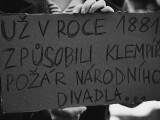 UŽ V ROCE 1881
ZPŮSOBILI KLEMPÍŘ
POŽÁR NÁRODNÍHO
DIVADLA...